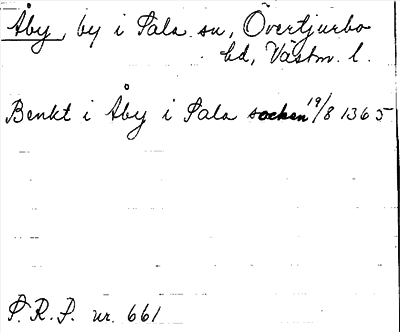 Åby, by i Sala sn, Övertjurbo
hd, Västm. l.
Benkt i Åby i Sala socken 19/8 1365
P.R.P. nr. 661